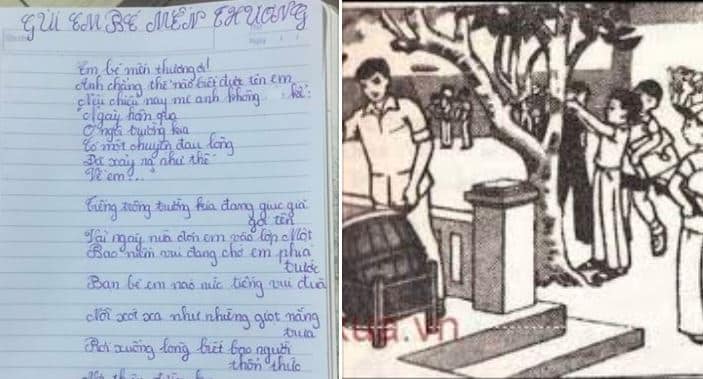 GỬI EM BÉ MẾN THƯƠNG
Em bé mến thương ơi!
Anh chẳng thể nào biết được tên em
Nếu chiều nay mẹ anh không kể:
"Ngày hôm qua
Ở ngôi trường kia
Có một chuyện đau lòng
Đã xảy ra như thế
Về em..."
Tiếng trống trường kia đang giục giã
gọi tên
Tài ngay nữa đón em vào lớp Một
Bao niềm vui đang chờ em phía
trước
Bạn bè em náo nức tiếng vui đùa
Nỗi xót xa như những giọt nắng
trưa
Rơi xuống lòng biết bao người
thổn thức
xưa.vn